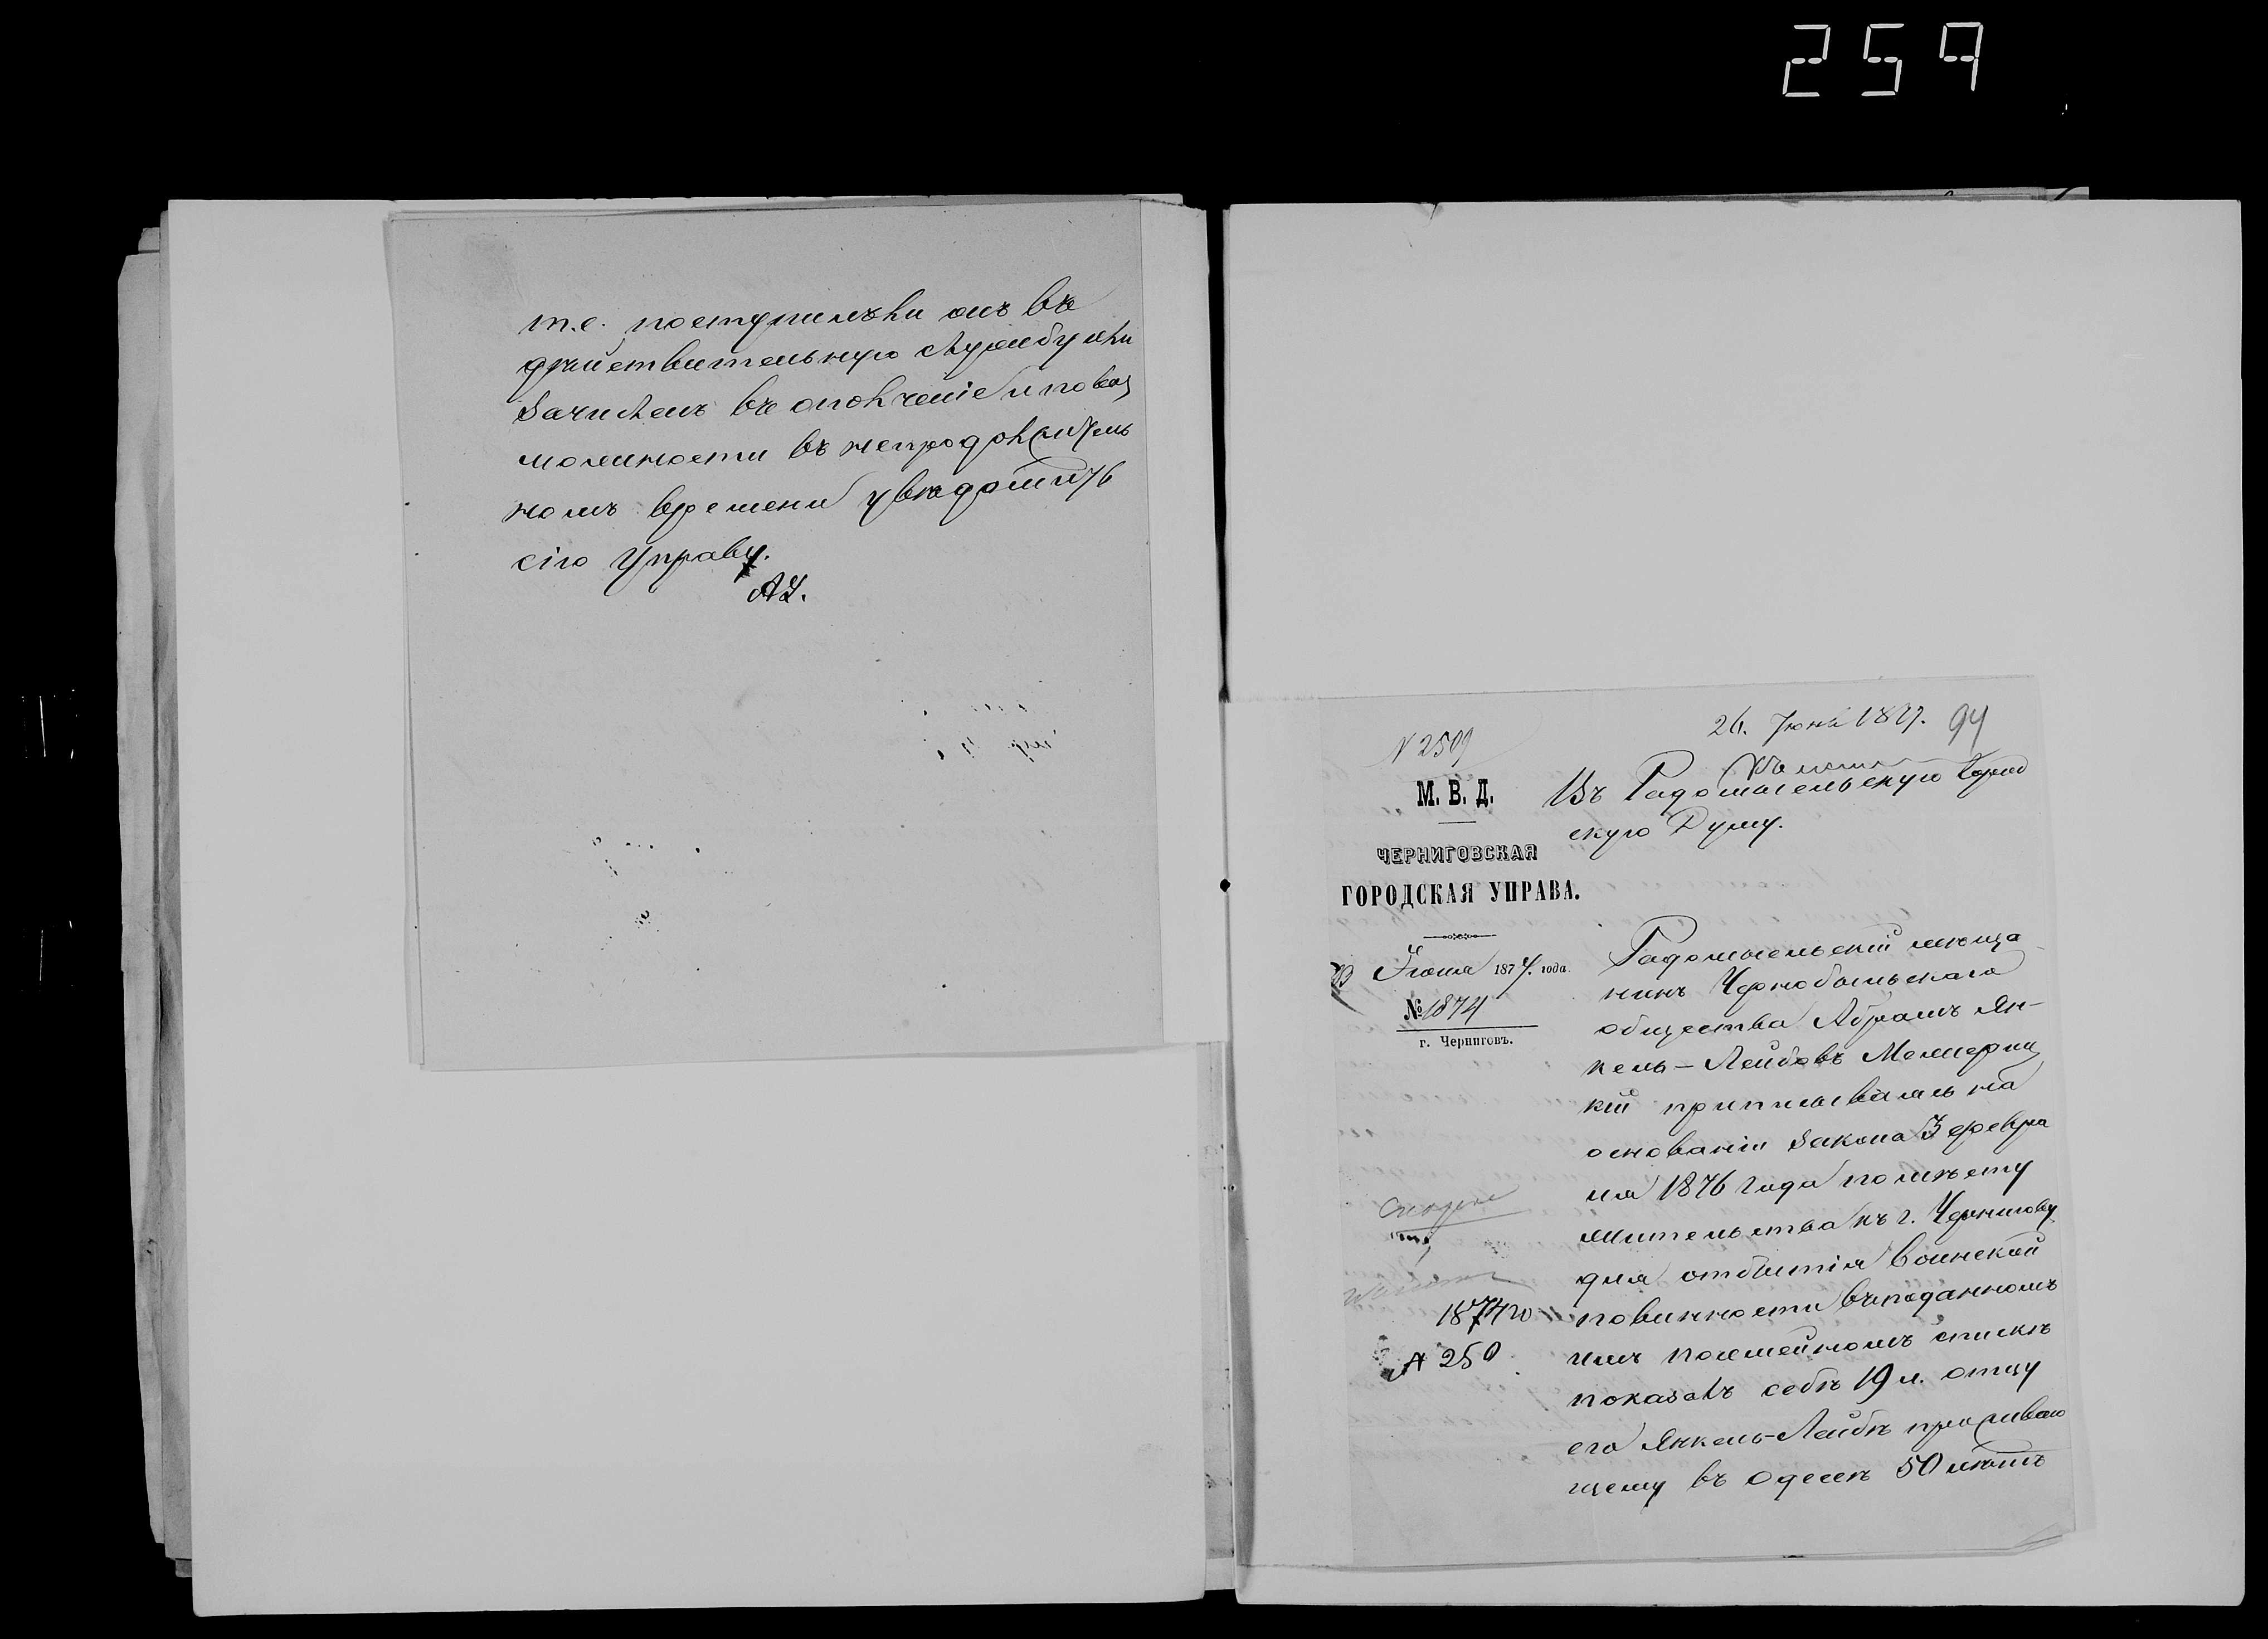 259
т.е. поступилъ ли онъ въ
дѣйствительную службу или
зачисленъ въ ополченіе и по воз
можности въ непродолжитель
номъ времени увѣдомить
сію Управу.
26. Іюня 1877. 94
N 2509
М. В. Д.
ЧЕРНИГОВСКАЯ
ГОРОДСКАЯ УПРАВА.
Іюня 1877. года.
№ 1874
г. Черниговъ.
Въ Радомысельскую Город
скую Думу.
Радомысельскій мѣща
нинъ Чернобыльскаго
общества Абрамъ Ян-
кель-Лейбовъ Межериц
кій приписываясь на
основаніи закона 3 февра
ля 1876 года по мѣсту
жительства къ г. Чернигову
для отбытія воинской
повинности въ поданномъ
имъ посемейномъ спискѣ
показалъ себѣ 19 л. отцу
его Янкель-Лейбѣ прожива­ю
щему въ Одессѣ 50 лѣтъ
1874 го
250